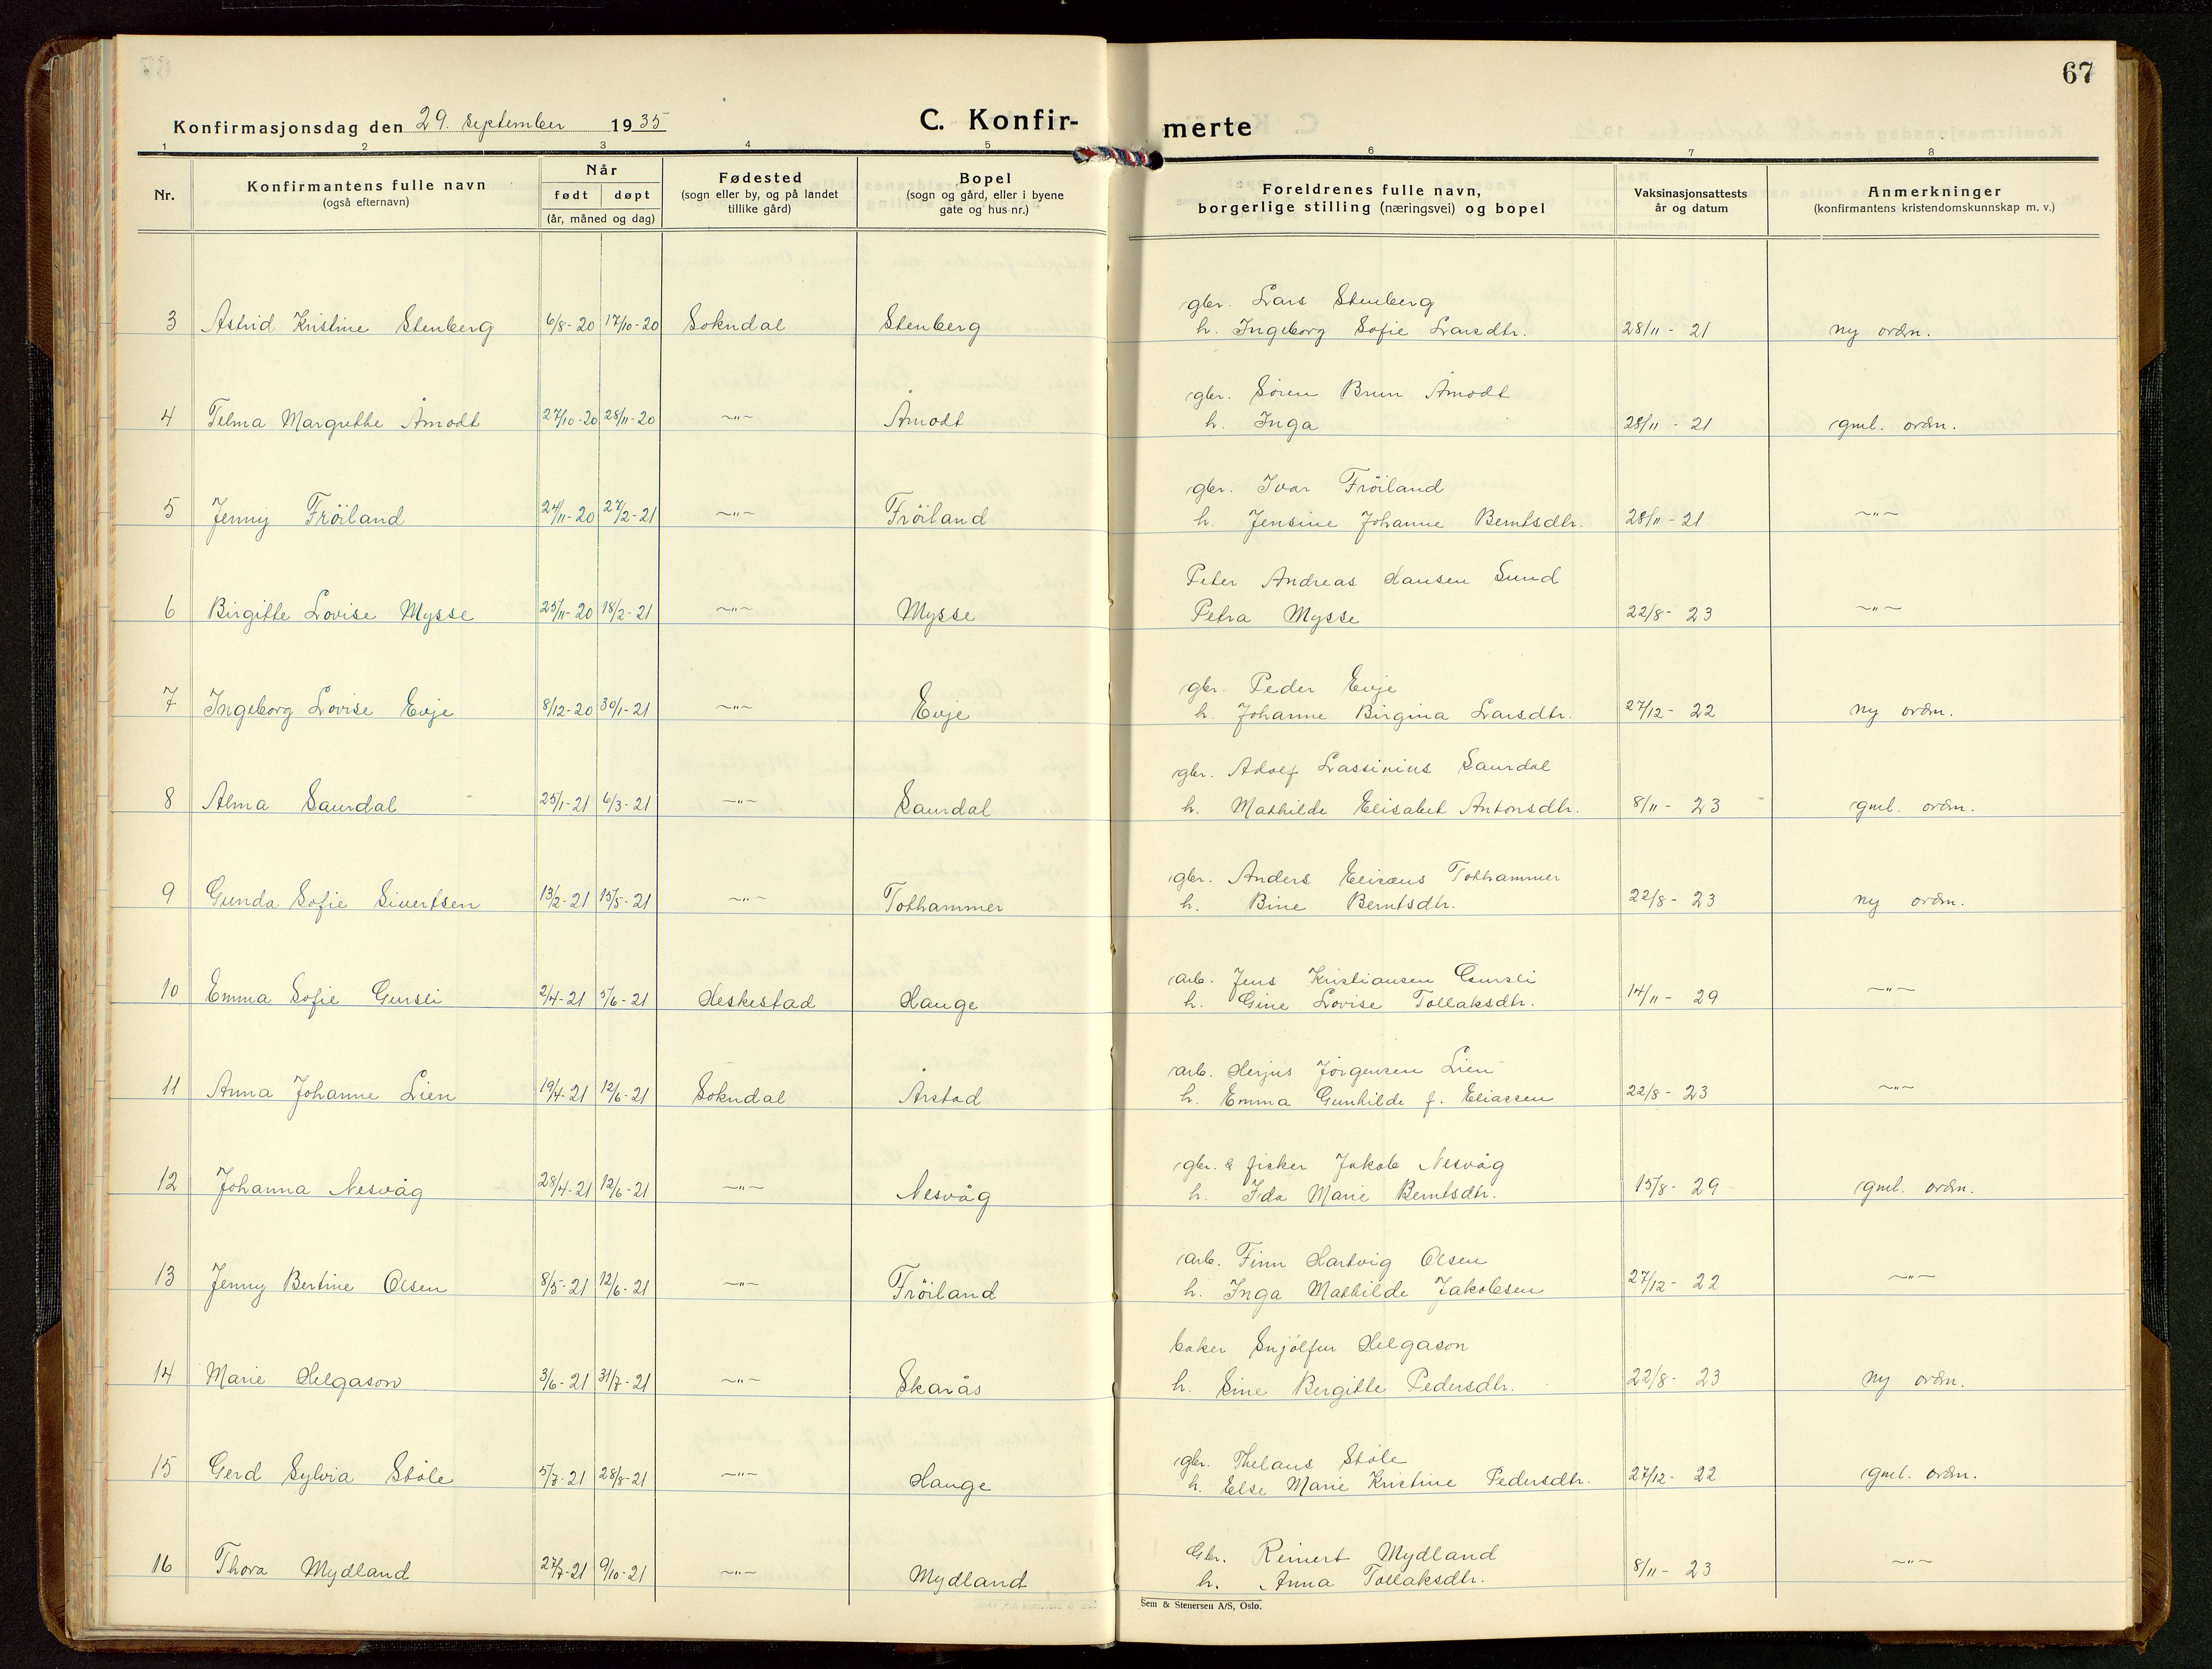 67
Konfirmasjonsdag den 29. september 1935
C. Konfir-merte
1 2 3 4 5 6 7 8
Nr. Konfirmantens fulle navn (også efternavn) Når født døpt (år, måned og dag) Fødested (sogn eller by, og på landet tillike gård) Bopel (sogn og gård, eller i byene gate og hus nr.) Foreldrenes fulle navn, borgerlige stilling (næringsvei) og bopel Vaksinasjonsattests år og datum Anmerkninger (konfirmantens kristendomskunnskap m. v.)
gbr. Lars Stenberg
3 Astrid Kristine Stenberg 6/8-20 17/10-20 Sokndal Stenberg h. Ingeborg Sofie Larsdtr. 28/11-21 ny ordn.
gbr. Søren Brun Åmodt
4 Telma Margrethe Åmodt 27/10-20 28/11-20 —"— Åmodt h. Inga 28/11-21 gml. ordn.
gbr. Ivar Fröiland
5 Jenny Fröiland 24/11-20 27/2-21 —"— Fröiland h. Jensine Johanne Berntsdtr. 28/11-21 —"—
Peter Andreas Hansen Lund
6 Birgitte Lovise Mysse 25/11-20 18/2-21 —"— Mysse Petra Mysse 22/8-23 —"—
gbr. Peder Evje
7 Ingeborg Lovise Evje 8/12-20 30/1-21 —"— Evje h. Johanne Birgina Larsdtr. 27/12-22 ny ordn.
gbr. Adolf Lassinius Saurdal
8 Alma Saurdal 25/1-21 6/3-21 —"— Saurdal h. Mathilde Elisabet Antonsdtr. 8/11-23 gml. ordn.
gbr. Anders Elisæus Tothammer
9 Gunda Sofie Sivertsen 13/2-21 15/5-21 —"— Tothammer h. Bine Berntsdtr. 22/8-23 ny ordn.
arb. Jens Kristiansen Gursli
10 Emma Sofie Gursli 2/4-21 5/6-21 Heskestad Hauge h. Gine Lovise Tollaksdtr. 14/11-29 —"—
arb. Herjus Jørgensen Lien
11 Anna Johanne Lien 19/4-21 12/6-21 Sokndal Årstad h. Emma Gunhilde f. Eliassen 22/8-23 —"—
gbr. & fisker Jakob Nesvåg
12 Johanna Nesvåg 28/4-21 12/6-21 —"— Nesvåg h. Ida Marie Berntsdtr. 15/8-29 gml. ordn.
arb. Finn Hartvig Olsen
13 Jenny Bertine Olsen 8/5-21 12/6-21 —"— Fröiland h. Inga Mathilde Jakobsen 27/12-22 —"—
baker Snjólfur Helgason
14 Marie Helgason 3/6-21 31/7-21 —"— Skarås h. Sine Bergitte Pedersdtr. 22/8-23 ny ordn.
gbr. Thelaus Støle
15 Gerd Sylvia Støle 5/7-21 28/8-21 —"— Hauge h. Else Marie Kristine Pedersdtr. 27/12-22 gml. ordn.
Gbr. Reinert Mydland
16 Thora Mydland 27/7-21 9/10-21 —"— Mydland h. Anna Tollaksdtr. 8/11-23 —"—
Sem & Stenersen A/S, Oslo.